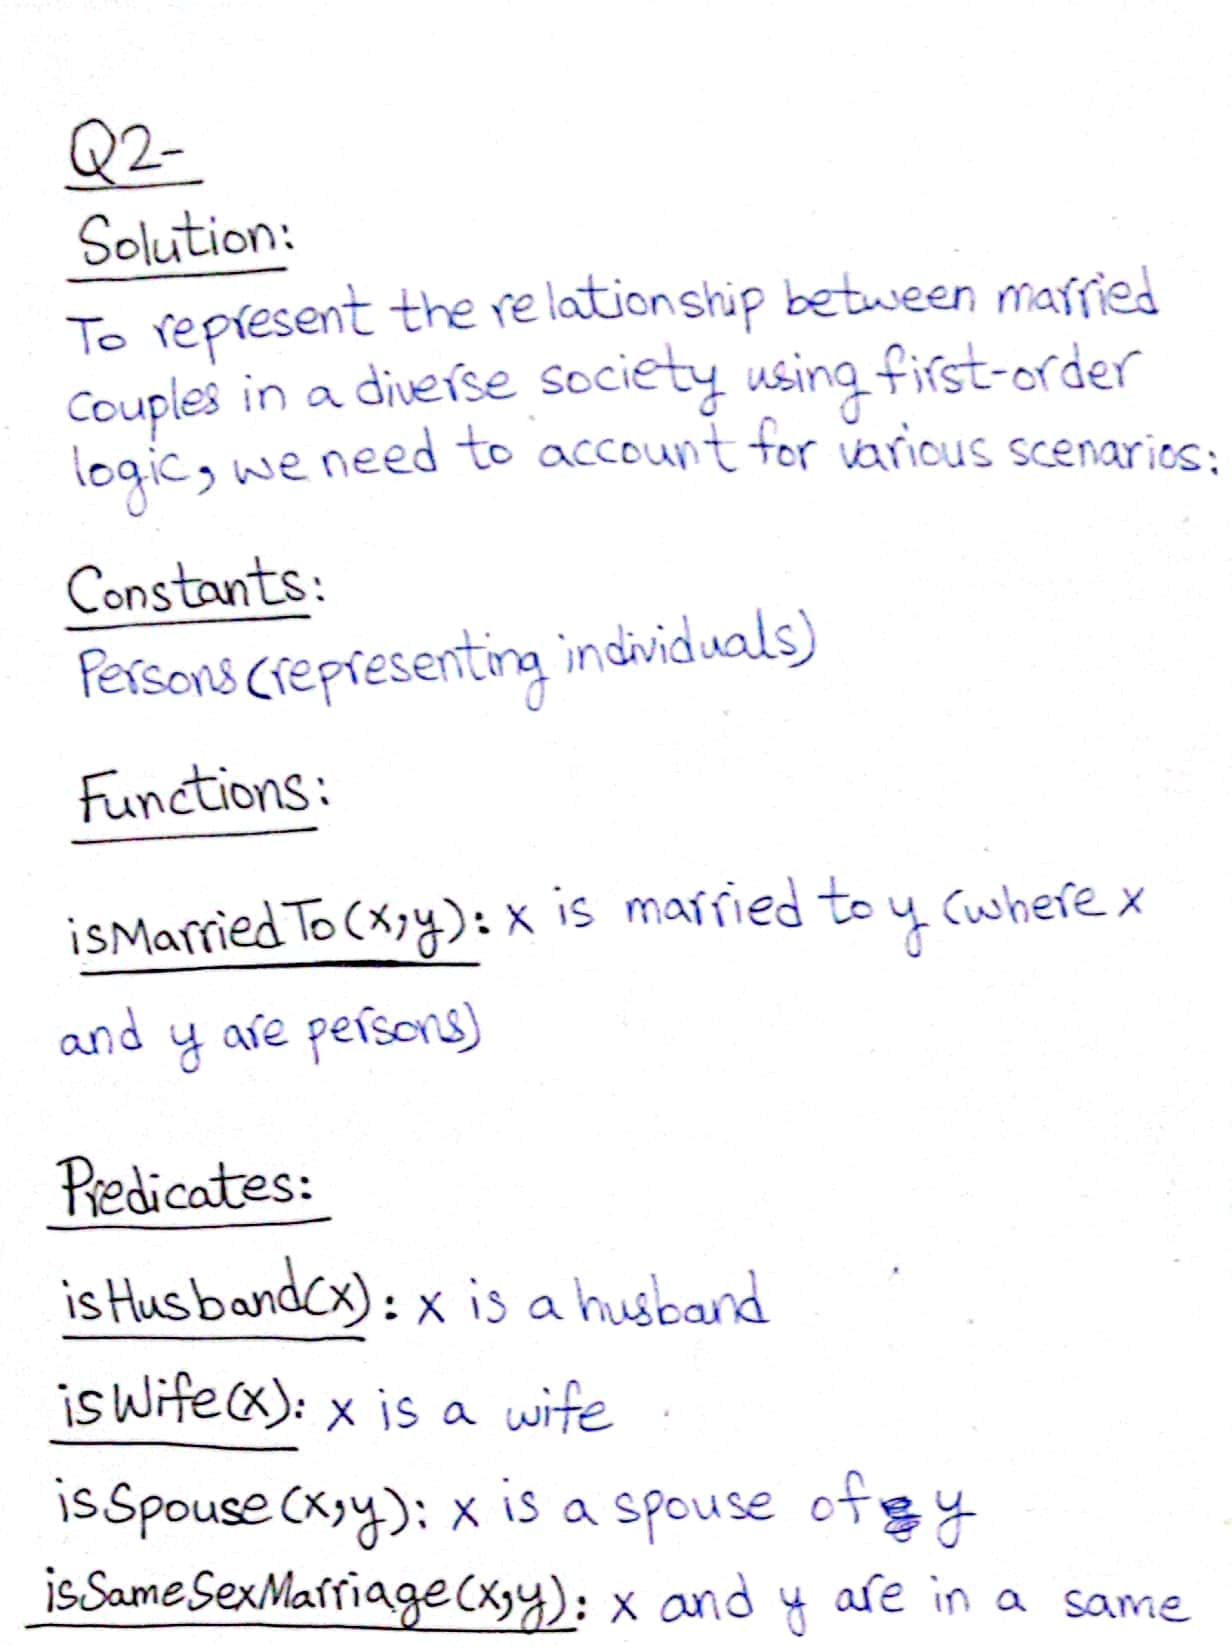 Q2-
Solution:
To represent the relationship between married
couples in a diverse society using first-order
logic, we need to account for various scenarios:
Constants:
Persons (representing individuals)
Functions:
isMarriedTo(x,y): x is married to y (where x
and y are persons)
Predicates:
isHusband(x): x is a husband
isWife(x): x is a wife
isSpouse(x,y): x is a spouse of y
isSameSexMarriage(x,y): x and y are in a same